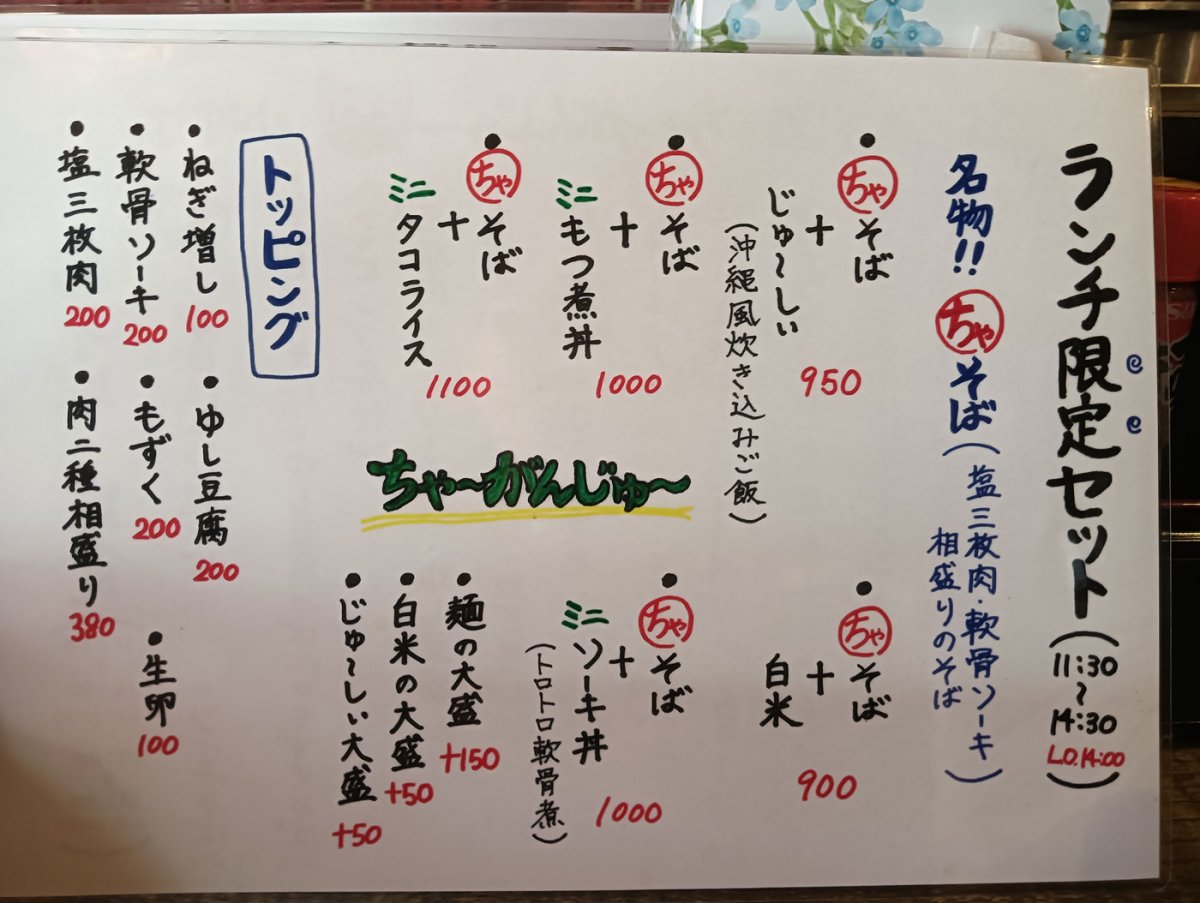 ランチ限定セット(11:30~14:30 L.O.14:00)
名物!! ちゃそば(塩三枚肉・軟骨ソーキ
相盛りのそば)
• ちゃそば
+
じゅ~しぃ
950
(沖縄風炊き込みご飯)
• ちゃそば
+
白米
900
• ちゃそば
+
ミニもつ煮丼
1000
• ちゃそば
+
ミニソーキ丼
1000
(トロトロ軟骨煮)
• ちゃそば
+
ミニタコライス
1100
ちゃ~がんじゅ~
• 麺の大盛 +150
• 白米の大盛 +50
• じゅ~しぃ大盛 +50
トッピング
• ねぎ増し 100
• ゆし豆腐 200
• 軟骨ソーキ 200
• もずく 200
• 生卵 100
• 塩三枚肉 200
• 肉二種相盛り 380